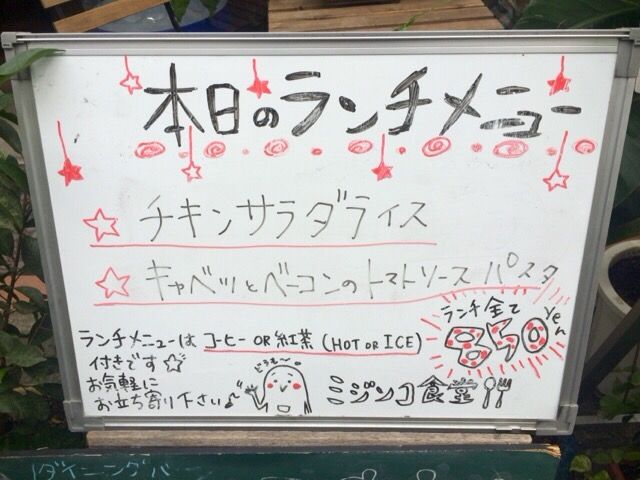 本日のランチメニュー
☆ チキンサラダライス
☆ キャベツとベーコンのトマトソースパスタ
ランチ全て
850yen
ランチメニューは コーヒー OR 紅茶 (HOT OR ICE)
付きです☆
お気軽に
お立ち寄り下さい♪
どうも〜
ミジンコ食堂
ダイニングバ